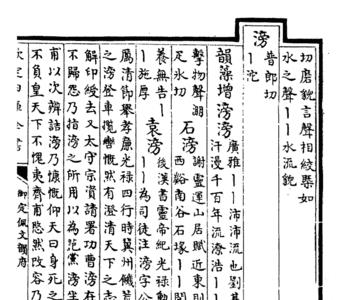 切磨貌言聲相絞槩如
水之聲｜｜水流貌
滂
普郎切
｜沱
韻藻增滂滂
廣雅｜｜沛沛流也劉基
汗漫千百年流潦浩｜｜
擊物聲溯
足氷切
石滂
謝靈運山居賦近東則
西谿南谷石｜｜
養無告｜
｜施厚
袁滂
後漢書靈帝紀光祿勳
｜｜為司徒注滂字公
厲清節舉孝廉光祿四行時冀州饑
之滂登車攬轡慨然有澄清天下之志
解印綬去又太守宗資請署功曹滂在
不歸怨乃指滂之所用以為范黨滂坐
甫以次辨詰滂乃慷慨仰天曰身死之
不負皇天下不愧夷齊甫愍然改容乃
御定佩文韻府